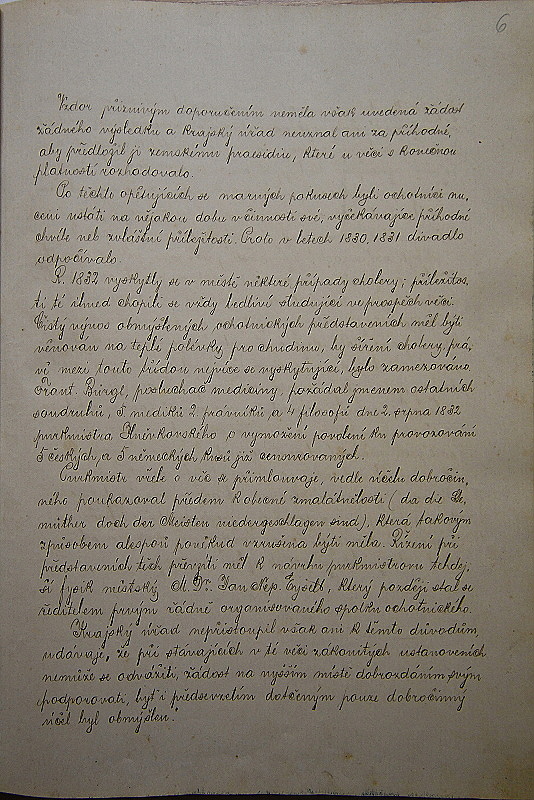 6
Vzdor příznivým doporučením neměla však uvedená žádost
žádného výsledku a Krajský úřad neuznal ani za příhodné,
aby předložil ji zemskému praesidiu, které u věci s konečnou
platností rozhodovalo.
Po těchto opětujících se marných pokusech byli ochotníci nu,
ceni ustáti na nějakou dobu v činnosti své, vyčkávajíce příhodné
chvíle neb zvláštní příležitosti. Proto v letech 1830, 1831 divadlo
odpočívalo.
R. 1832 vyskytly se v městě některé případy cholery; příležitos,
ti té ihned chopili se vždy bedliví studující ve prospěch věci.
Čistý výnos obmyšlených ochotnických představeních měl býti
věnován na teplé polévky pro chudinu, by šíření cholery, prá,
vě mezi touto třídou nejvíce se vyskytující, bylo zamezováno.
Frant. Bürgl, posluchač medicíny, požádal jmenem ostatních
soudruhů, 5 mediků 2 právníků a 4 filosofů dne 2. srpna 1832
purkmistra Hněvkovského o vymožení povolení ku provozování
5 českých, a 5 německých kusů již censurovaných.
Purkmistr vřele o věc se přimlouvaje, vedle účelu dobročin,
ného poukazoval předem k obecné zmalátnělosti (da die Ge,
müther doch der Meisten niedergeschlagen sind), která takovým
způsobem alespoň poněkud vzrušena býti měla. Řízení při
představeních těch převzíti měl k návrhu purkmistrovu tehdej,
ší fysik městský M. Dr. Jan Nep. Eyselt, který později stal se
ředitelem prvým řádně organisovaného spolku ochotnického.
Krajský úřad nepřistoupil však ani k těmto důvodům,
udávaje, že při stávajících v té věci zákonitých ustanoveních
nemůže se odvážiti, žádost na vyšším místě dobrozdáním svým
podporovati, byť i předsevzetím dotčeným pouze dobročinný
účel byl obmyšlen.